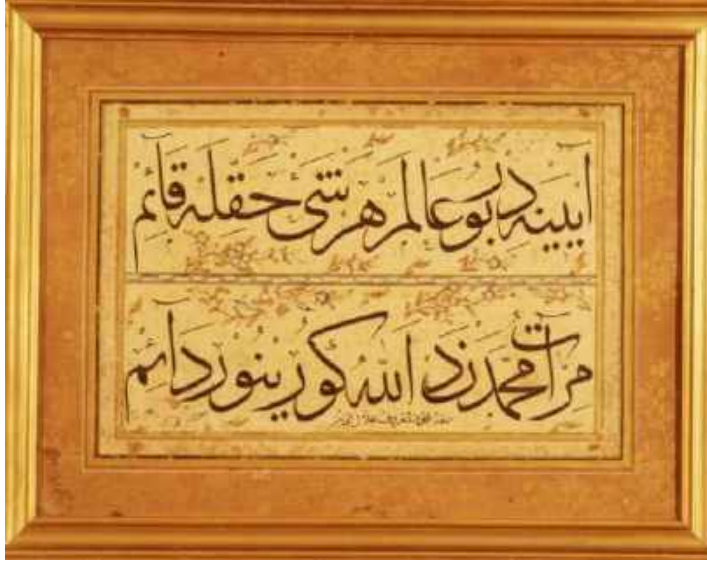 آیینه‌در بو عالم هر شیٔ حقله قائم
مرآت محمددن الله کورینور دائم